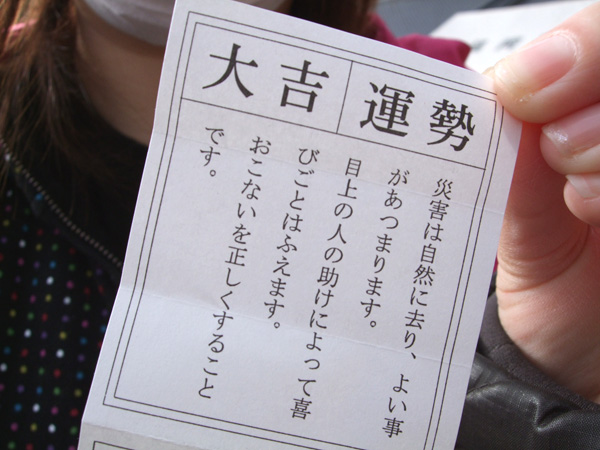 運勢
大吉
災害は自然に去り、よい事
があつまります。
目上の人の助けによって喜
びごとはふえます。
おこないを正しくすること
です。